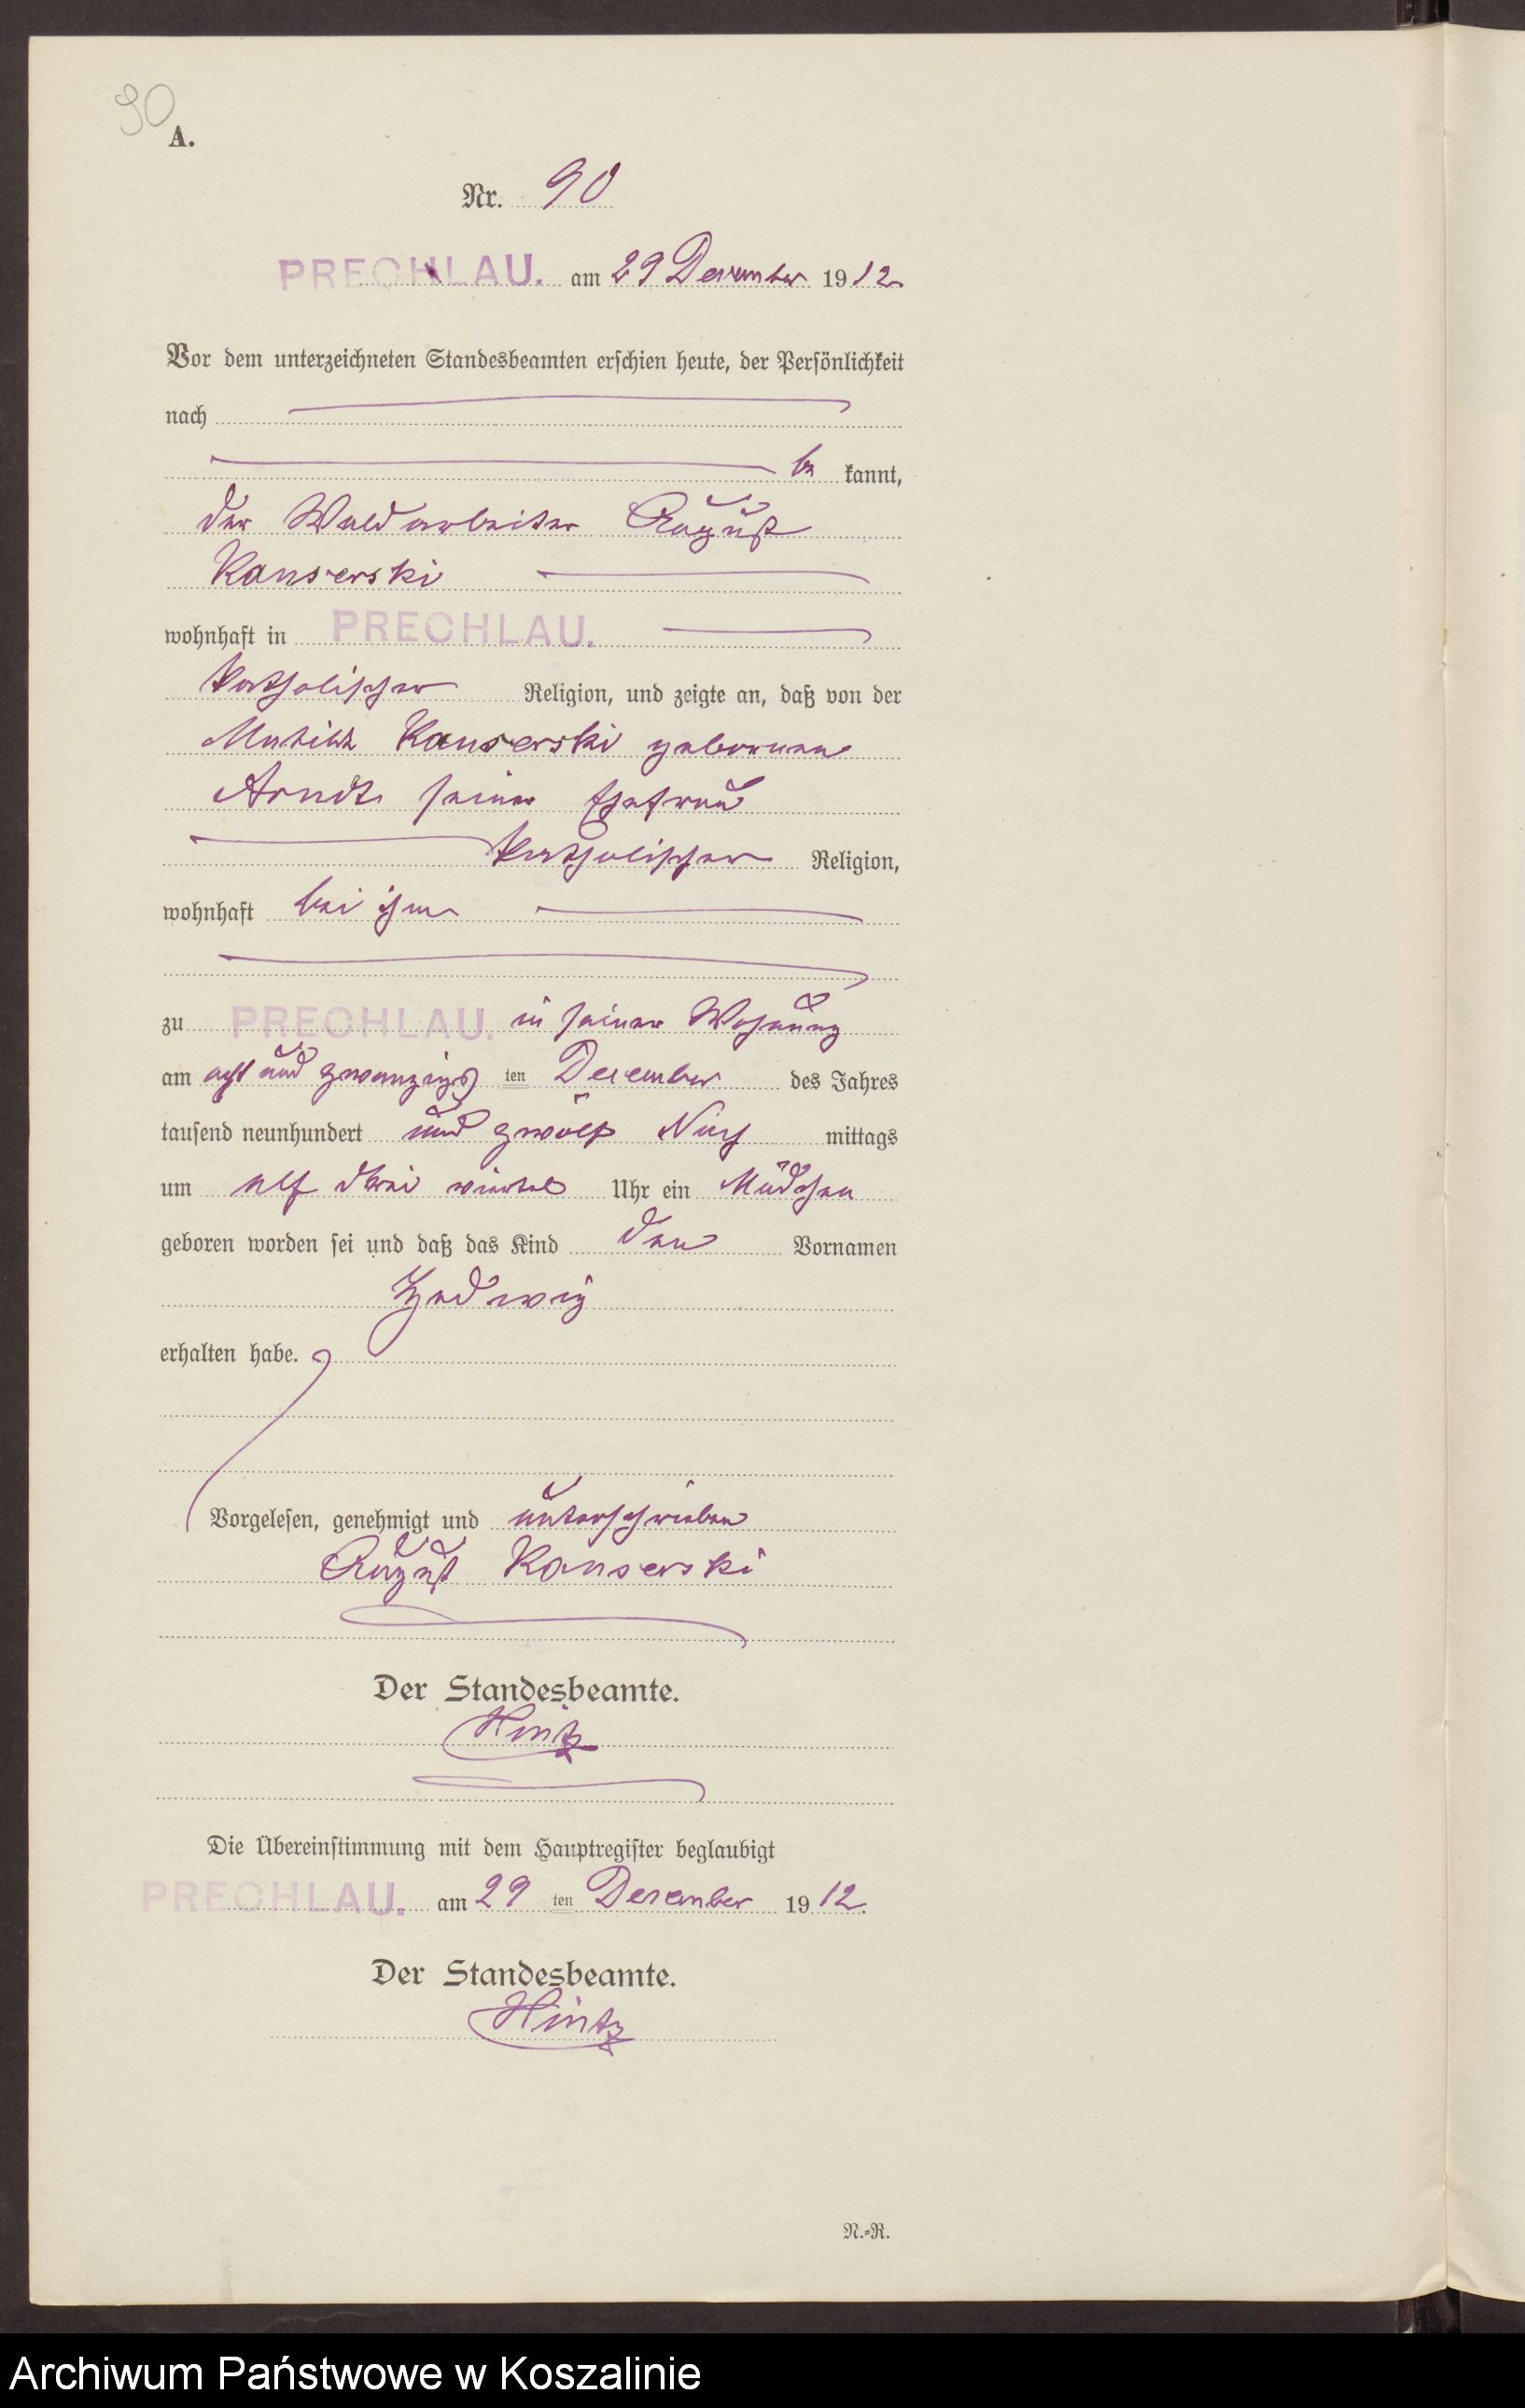 90
A.
Nr. 90
PRECHLAU. am 29 Dezember 1912.
Vor dem unterzeichneten Standesbeamten erschien heute, der Persönlichkeit
nach
be kannt,
der Waldarbeiter August
Kanserski
wohnhaft in PRECHLAU.
katholischer Religion, und zeigte an, daß von der
Mathilde Kanserski geborenen
Arndt seiner Ehefrau
katholischer Religion,
wohnhaft bei ihm
zu PRECHLAU. in seiner Wohnung
am acht und zwanzigs ten Dezember des Jahres
tausend neunhundert und zwölf Nach mittags
um elf drei viertel Uhr ein Mädchen
geboren worden sei und daß das Kind den Vornamen
Hedwig
erhalten habe.
Vorgelesen, genehmigt und unterschrieben
August Kanserski
Der Standesbeamte.
Hintz
Die Übereinstimmung mit dem Hauptregister beglaubigt
PRECHLAU. am 29 ten Dezember 1912.
Der Standesbeamte.
Hintz
N.=R.
Archiwum Państwowe w Koszalinie